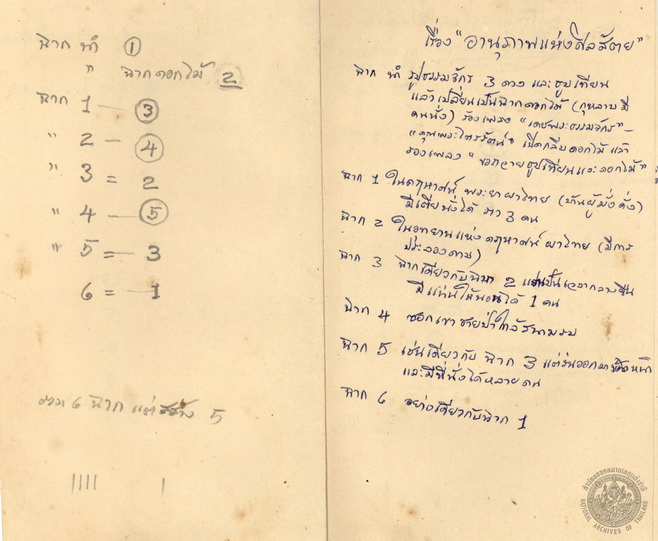 ฉาก นำ ①
" ฉากดอกไม้ 2
ฉาก 1 — ③
" 2 — ④
" 3 = 2
" 4 — ⑤
" 5 = 3
6 = 1
รวม 6 ฉาก แต่สร้าง 5
เรื่อง "อานุภาพแห่งศีลสัตย"
ฉาก นำ รูปธรรมจักร 3 ดวง และธูปเทียน
แล้วเปลี่ยนเป็นฉากดอกไม้ (กุหลาบ มี
คนนั่ง) ร้องเพลง "เดชพระธรรมจักร" –
"คุณพระไตรรัตน์" เปิดกลีบดอกไม้ แล้ว
ร้องเพลง "ขอถวายธูปเทียนและดอกไม้"
ฉาก 1 ในคฤหาสน์ พระยาผาไทย (ท่านผู้มั่งคั่ง)
มีเตียงนั่งได้ ราว 3 คน
ฉาก 2 ในอุทยานแห่งคฤหาสน์ ผาไทย (มีการ
ประลองดาบ)
ฉาก 3 ฉากเดียวกับฉาก 2 แต่เป็นเวลากลางคืน
มีแท่นให้นอนได้ 1 คน
ฉาก 4 ซอกเขาชายป่าใกล้สนามรบ
ฉาก 5 เช่นเดียวกับ ฉาก 3 แต่ร่นออกมา
และมีที่นั่งได้หลายคน
ฉาก 6 อย่างเดียวกับฉาก 1
สำนักหอจดหมายเหตุแห่งชาติ
NATIONAL ARCHIVES OF THAILAND